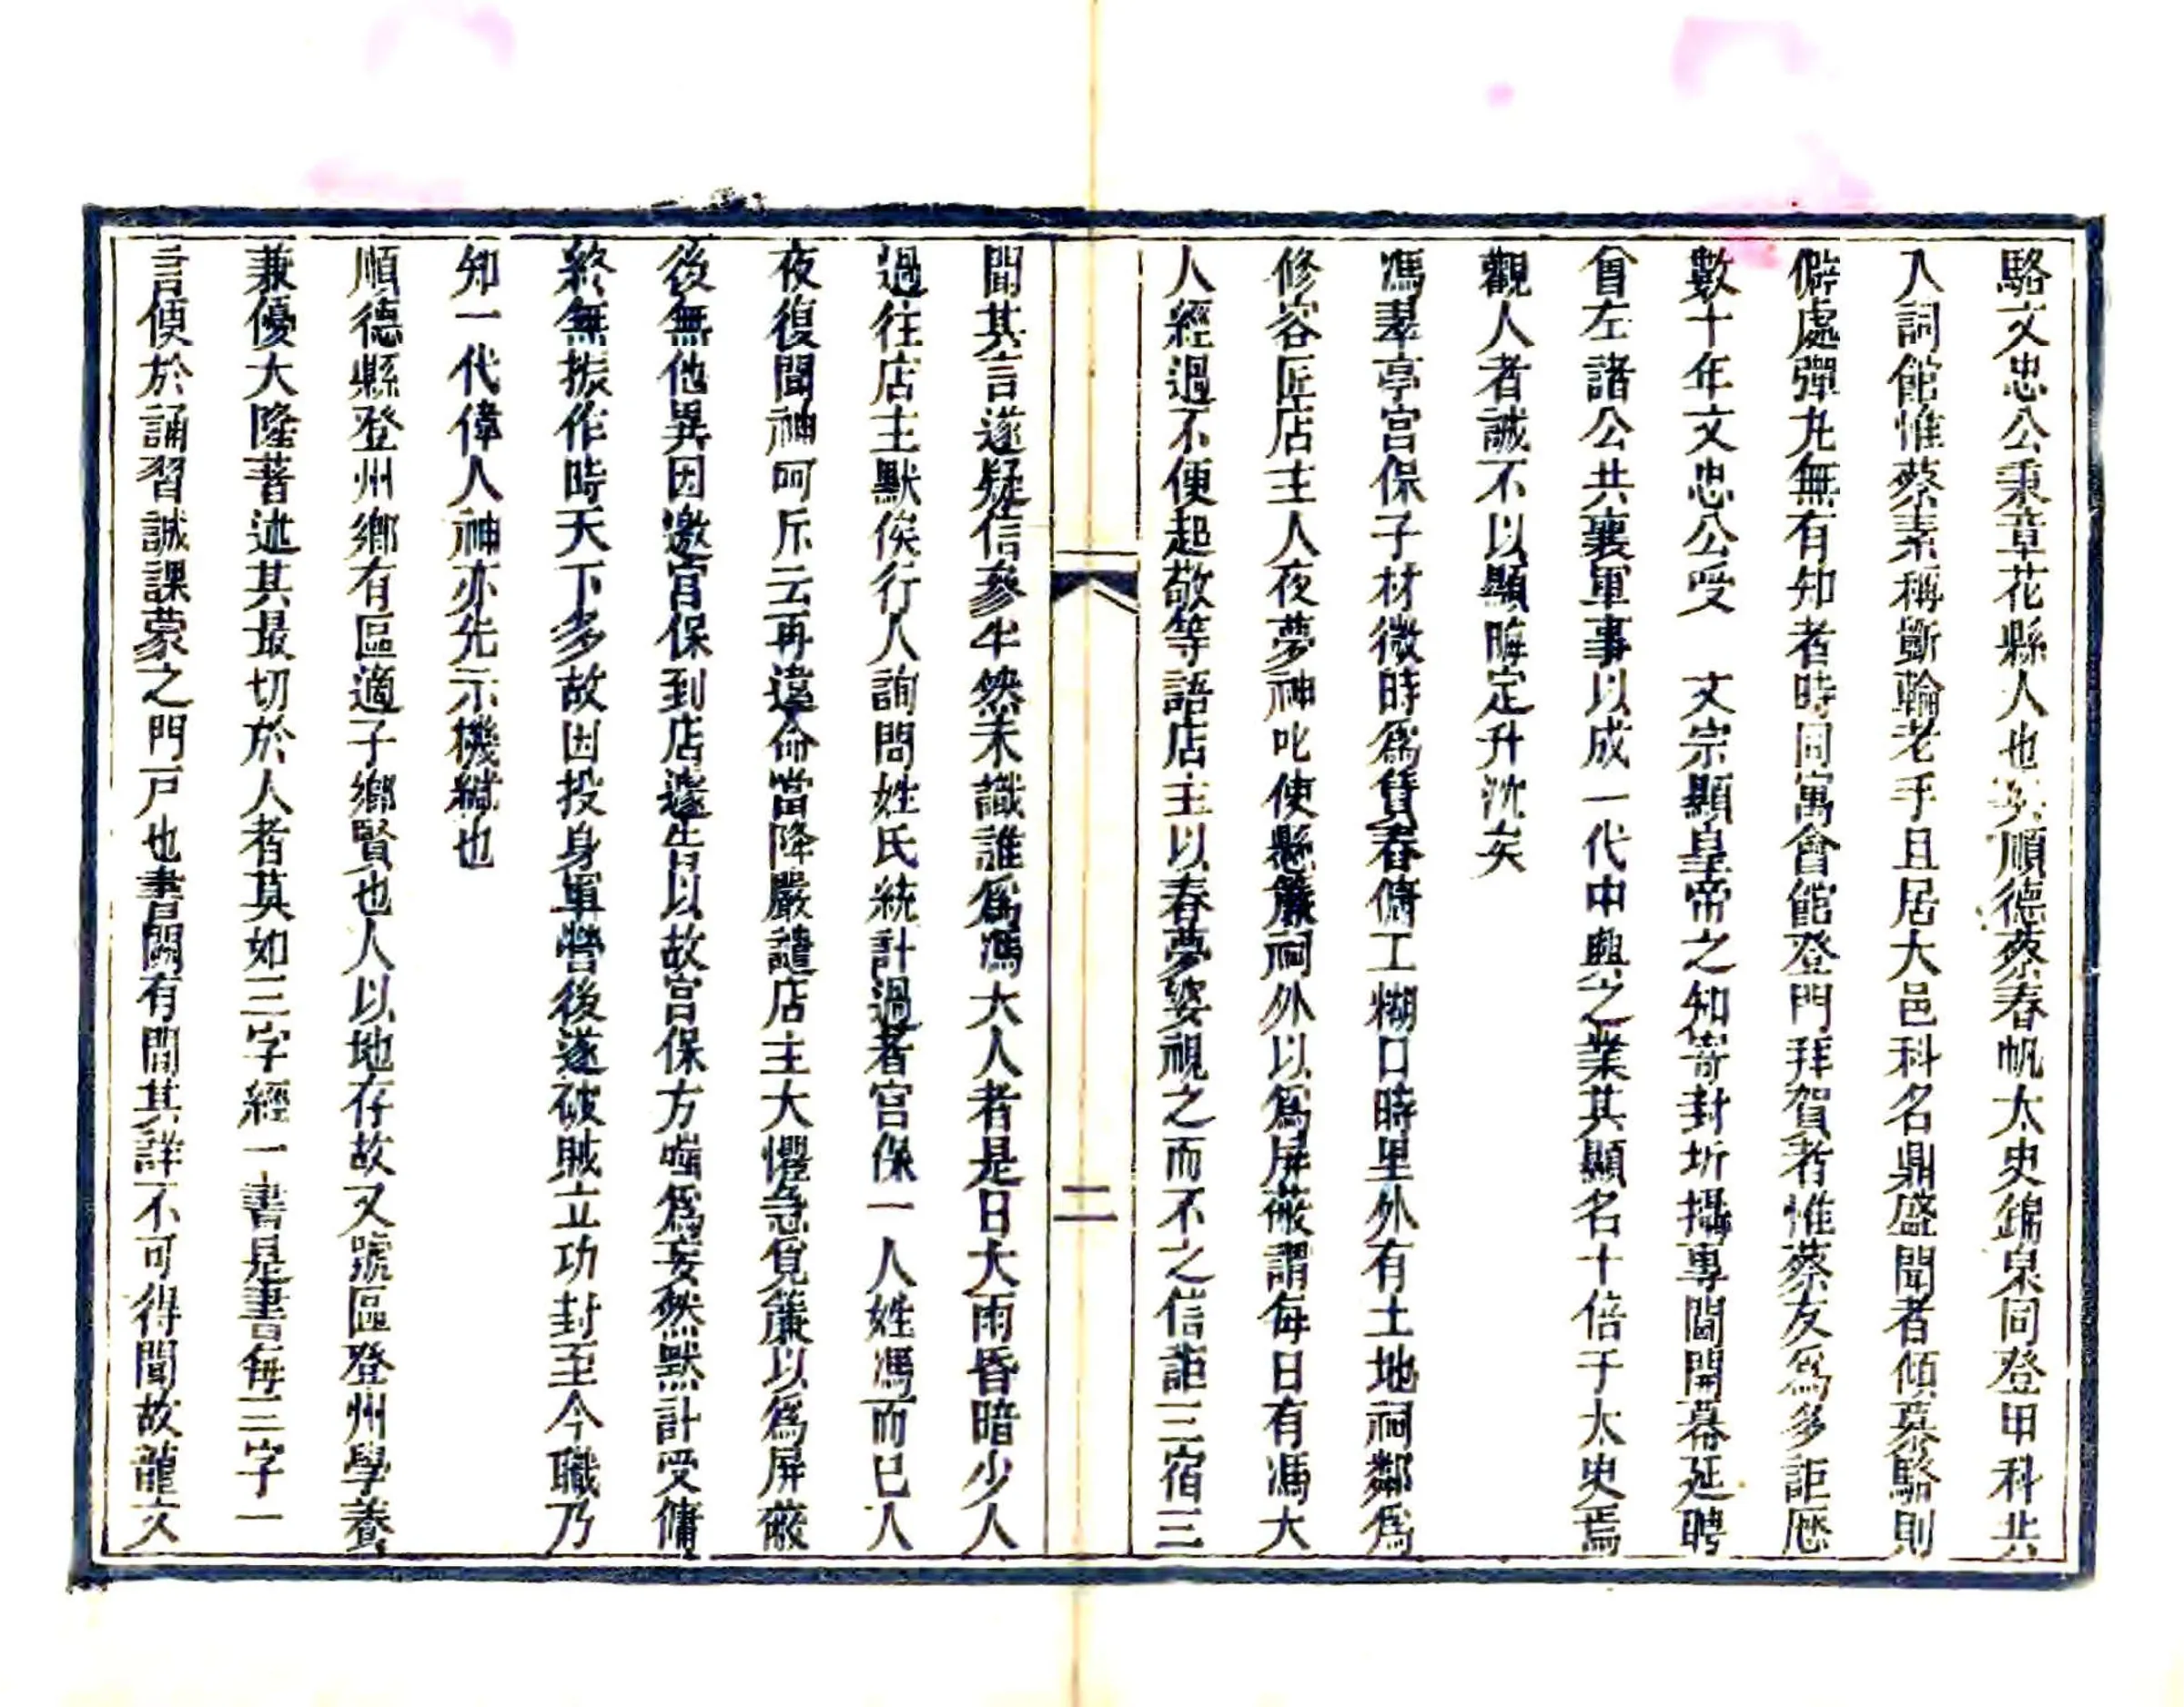 駱文忠公秉章花縣人也與順德蔡春帆太史錦泉同登甲科共
入詞館惟蔡素稱斵輪老手且居大邑科名鼎盛聞者傾慕駱則
僻處彈丸無有知者時同寓會館登門拜賀者惟蔡友爲多詎歴
數十年文忠公受 文宗顯皇帝之知寄封圻攝專閫開幕延聘
曾左諸公共襄軍事以成一代中興之業其顯名十倍于太史焉
觀人者誠不以顯晦定升沈矣
馮翠亭宫保子材微時爲賃舂傭工糊口時里外有土地祠鄰爲
修容匠店主人夜夢神叱使懸簾祠外以爲屏蔽謂每日有馮大
人經過不便起敬等語店主以春夢婆視之而不之信詎三宿三
二
聞其言遂疑信參半然未識誰爲馮大人者是日大雨昏暗少人
過往店主默俟行人詢問姓氏統計過者宫保一人姓馮而已人
夜復聞神呵斥云再違命當降嚴譴店主大懼急覓簾以爲屏蔽
後無他異因邀宫保到店遂告以故宫保方嗤爲妄然默計受傭
終無振作時天下多故因投身軍營後遂破賊立功封至今職乃
知一代偉人神亦先示機緘也
順德縣登州鄉有區適子鄉賢也人以地存故又號區登州學養
兼優大隆著述其最切於人者莫如三字經一書是書每三字一
言便於誦習誠課蒙之門戸也書闕有間其詳不可得聞故龍文